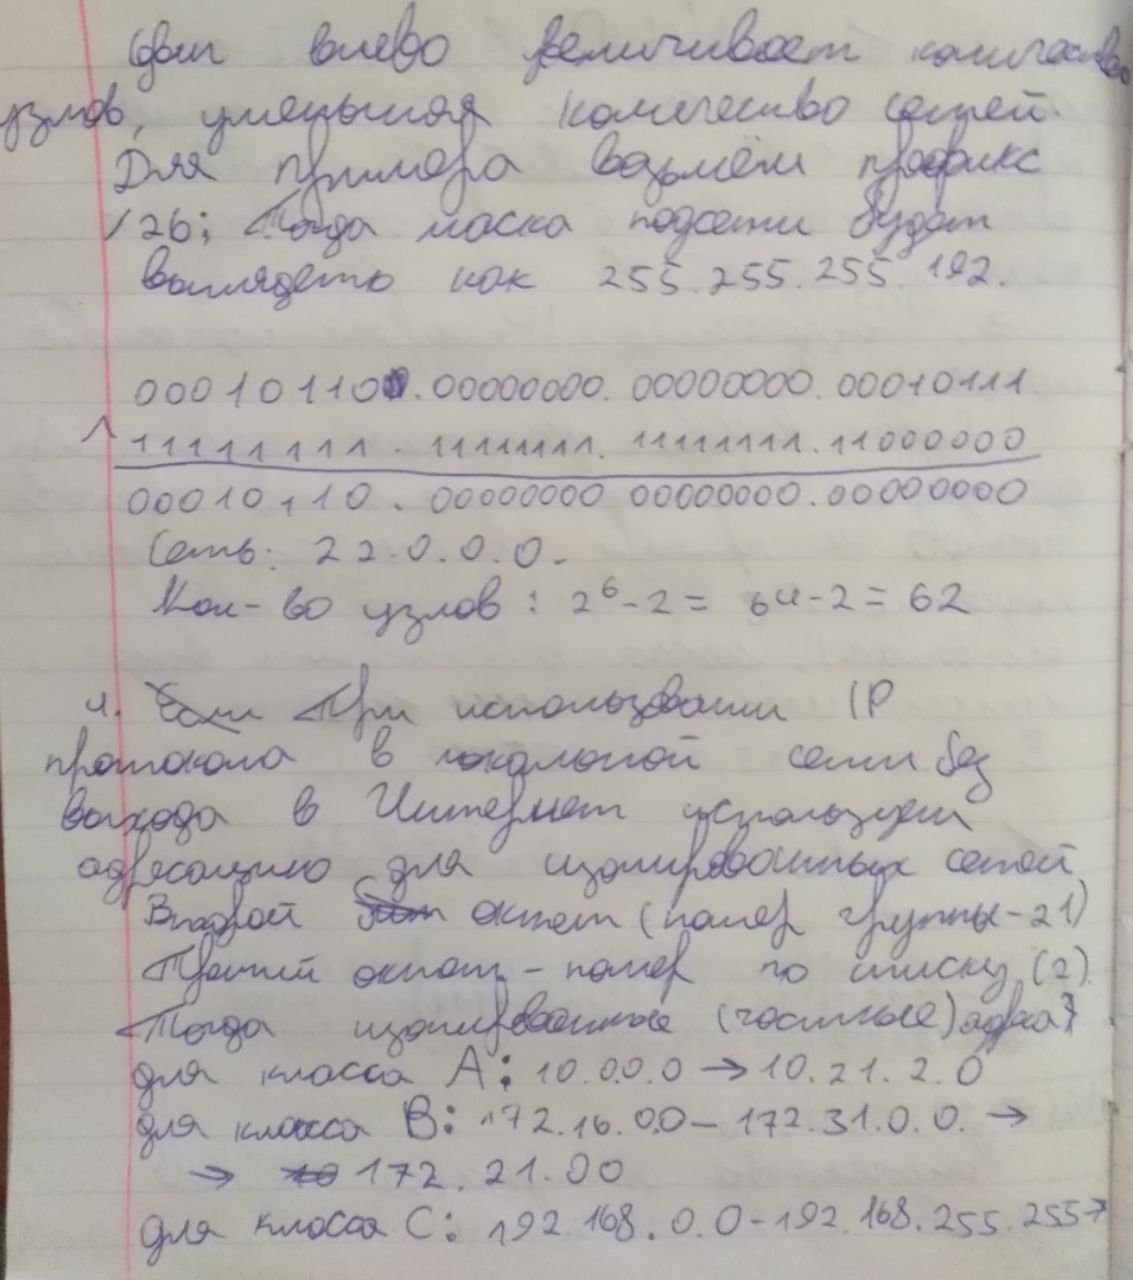 Сдвиг влево увеличивает количество
узлов, уменьшая количество сетей.
Для примера возьмём префикс
/26; Тогда маска подсети будет
выглядеть как 255.255.255.192.
000101100.00000000.00000000.00010111
^ 11111111.11111111.11111111.11000000
00010110.00000000 00000000.00000000
Сеть: 22.0.0.0.
Кол-во узлов: 2⁶-2= 64-2=62
4. При использовании IP
протокола в локальной сети без
выхода в Интернет используем
адресацию для изолированных сетей
Второй октет (номер группы-21)
Третий октет - номер по списку (2).
Тогда изолированные (частные) адреса
для класса A: 10.0.0.0 → 10.21.2.0
для класса B: 172.16.0.0 – 172.31.0.0. →
→ 172.21.00
для класса C: 192.168.0.0-192.168.255.255→